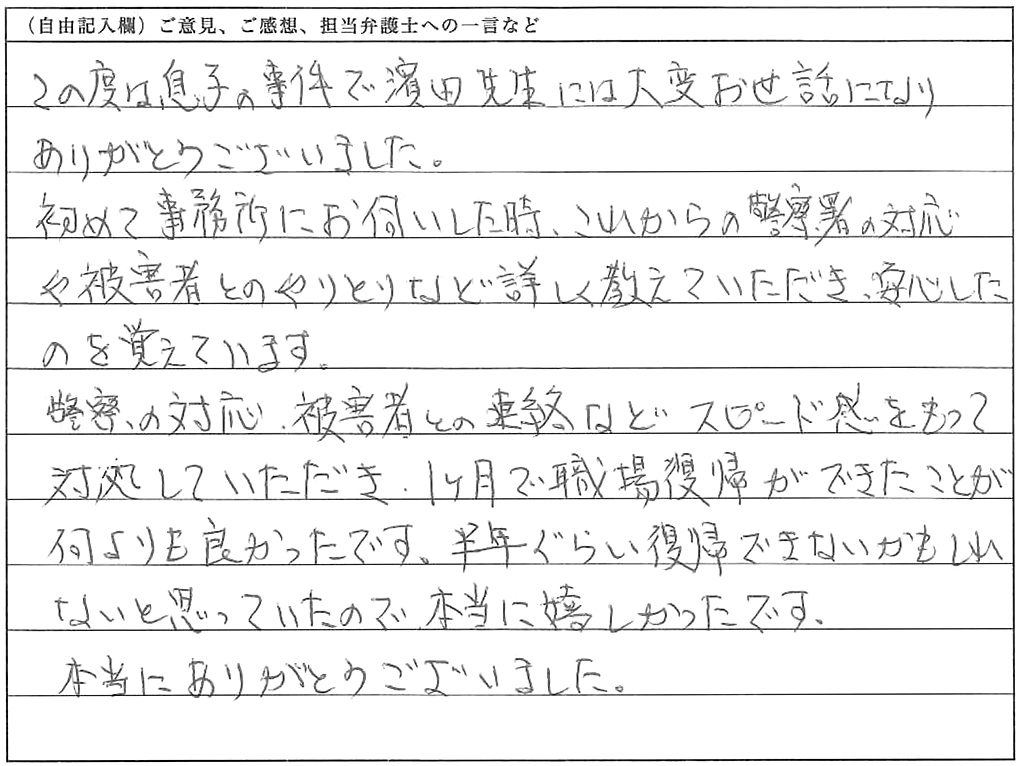 （自由記入欄）ご意見、ご感想、担当弁護士への一言など
この度は息子の事件で濱田先生には大変お世話になり
ありがとうございました。
初めて事務所にお伺いした時、これからの警察署の対応
や被害者とのやりとりなど詳しく教えていただき、安心した
のを覚えています。
警察の対応、被害者との連絡などスピード感をもって
対処していただき、1ヶ月で職場復帰ができたことが
何よりも良かったです。半年ぐらい復帰できないかもしれ
ないと思っていたので、本当に嬉しかったです。
本当にありがとうございました。